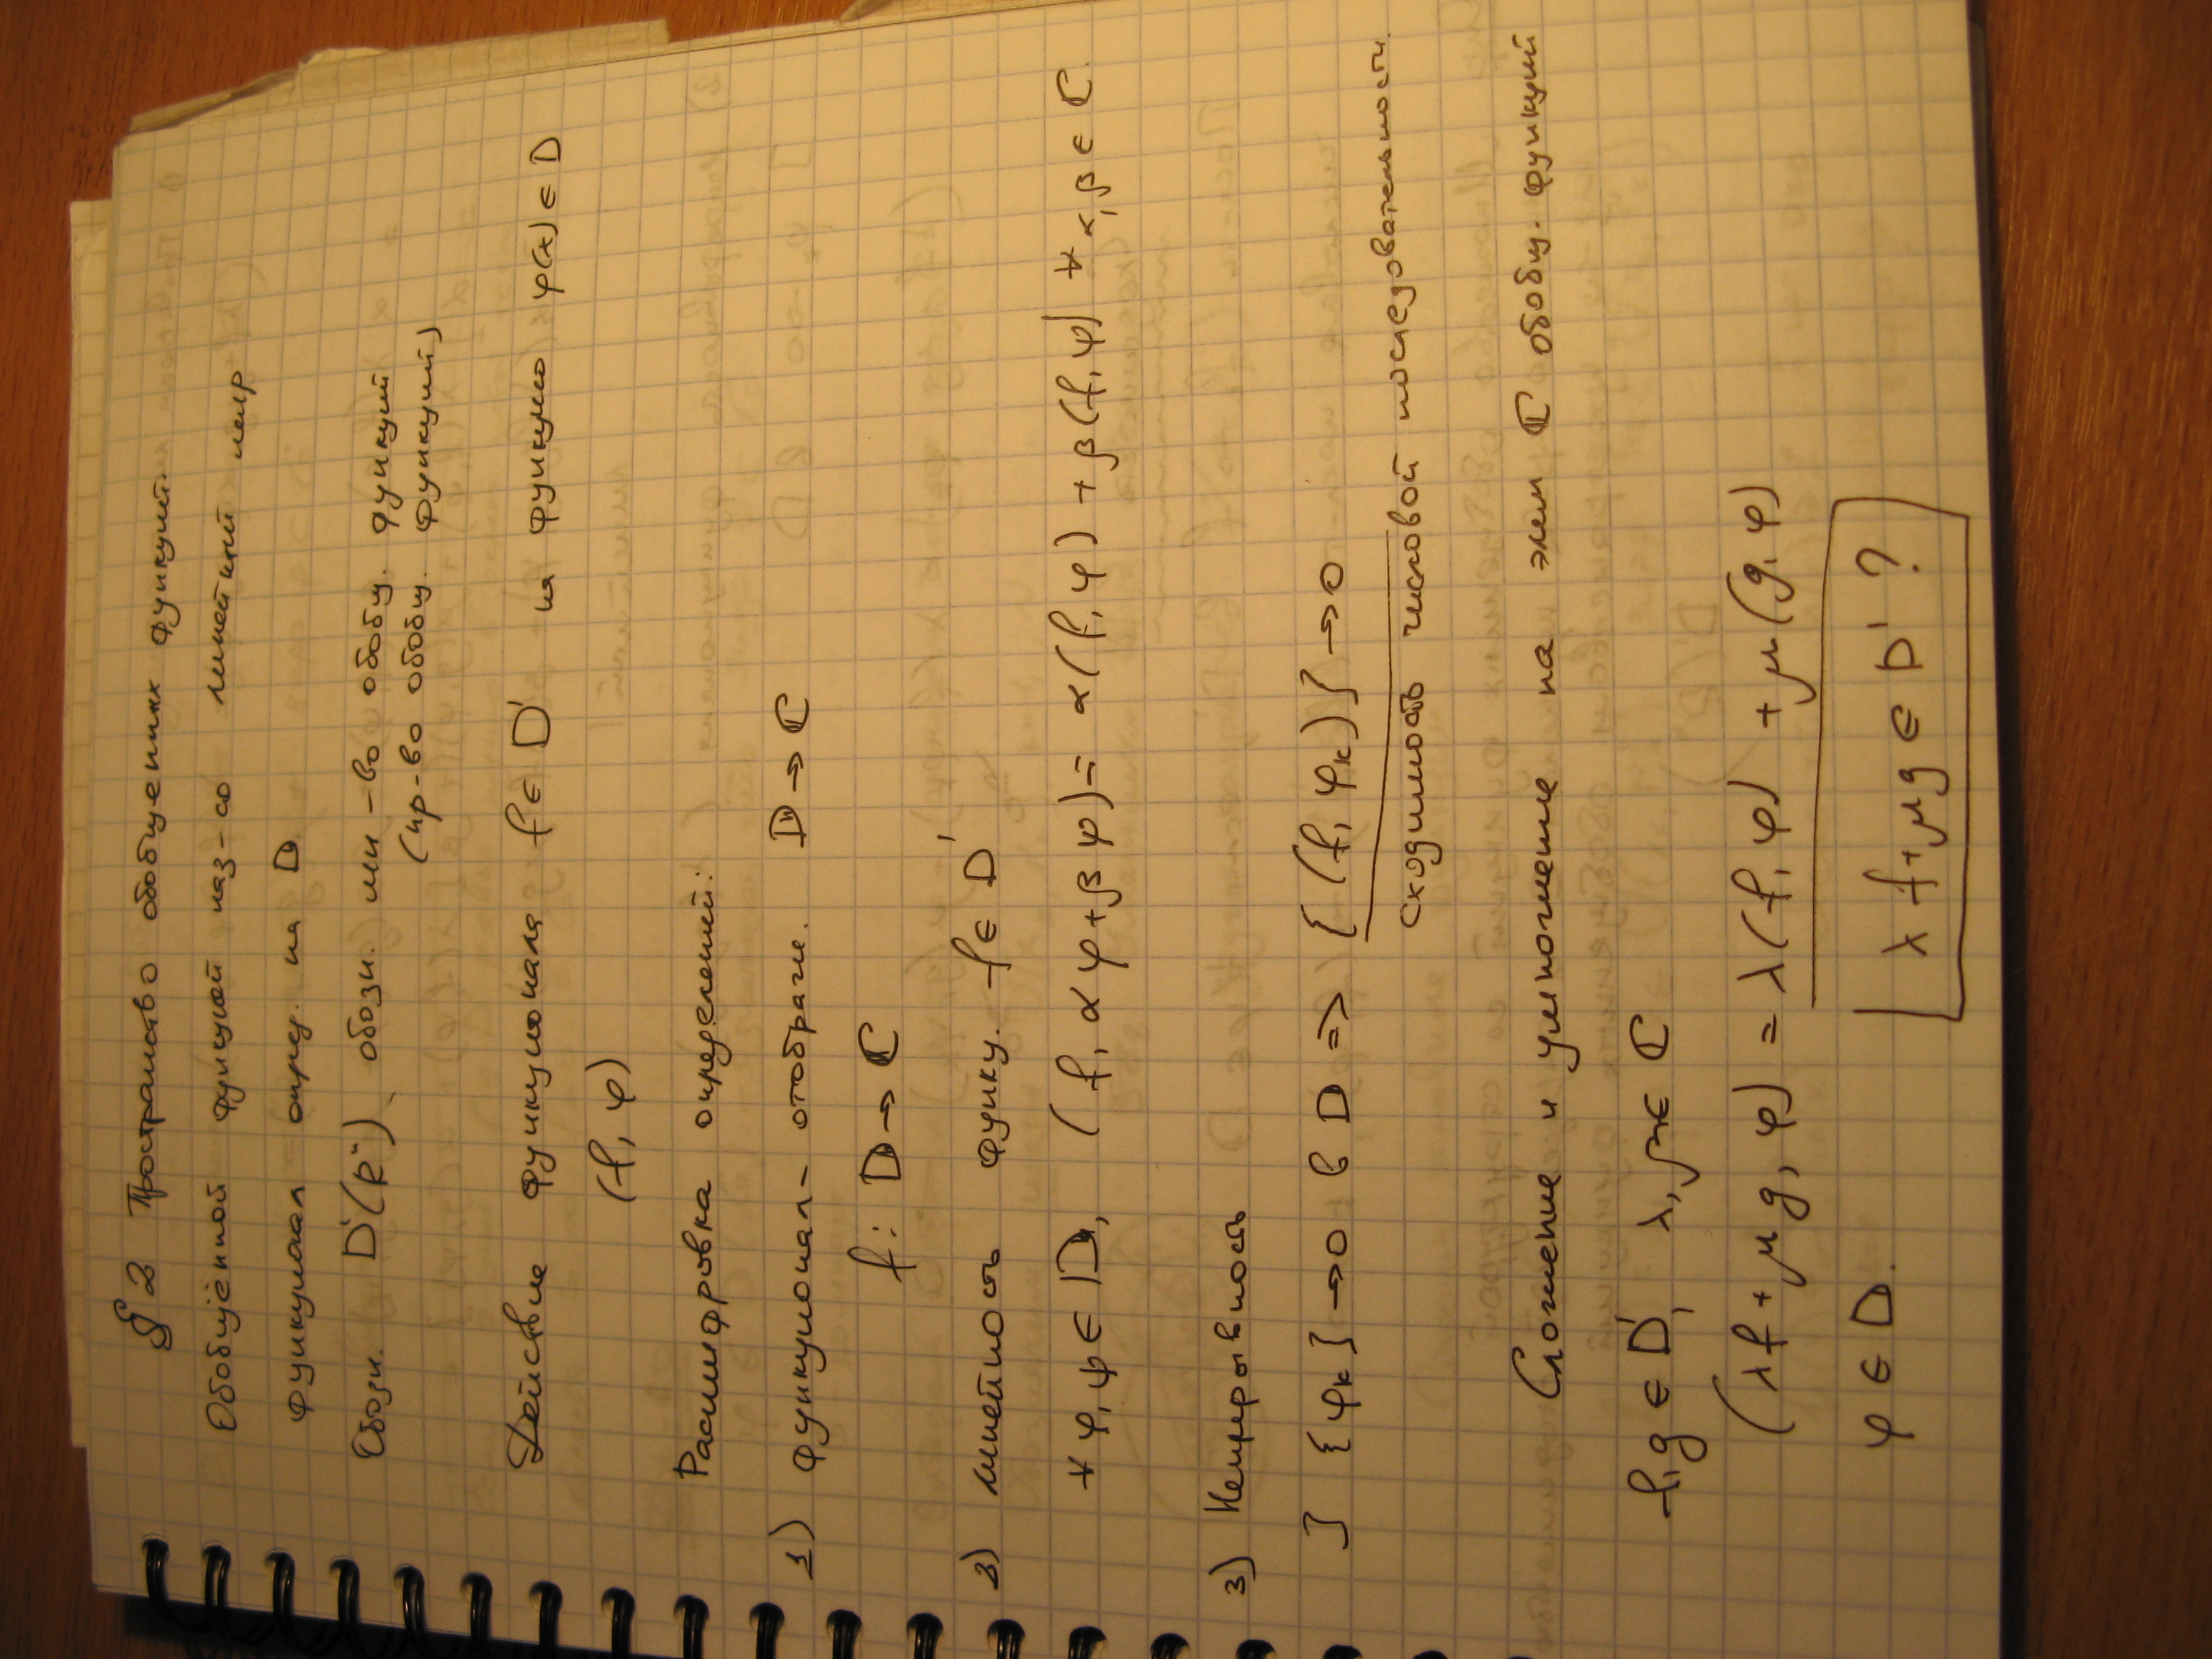 § 2 Пространство обобщенных функций.
Обобщённой функцией наз-ся линейный непр
функционал опред. на D
Обозн. D'(Rⁿ), обозн. мн-во обобщ. функций
(пр-во обобщ. функций)
Действие функционала f ∈ D' на функцию φ(x) ∈ D
(f, φ)
Расшифровка определений:
1) функционал - отображ. D → ℂ
f: D → ℂ
2) линейность функц. f ∈ D'
∀ φ, ψ ∈ D, (f, αφ + βψ) = α(f, φ) + β(f, ψ) ∀ α, β ∈ ℂ.
3) Непрерывность
] {φₖ} → 0 в D => {(f, φₖ)} → 0
сходимость числовой последовательности.
Сложение и умножение на элем ℂ обобщ. функций
f, g ∈ D', λ, μ ∈ ℂ
(λf + μg, φ) = λ(f, φ) + μ(g, φ)
φ ∈ D. λf + μg ∈ D' ?